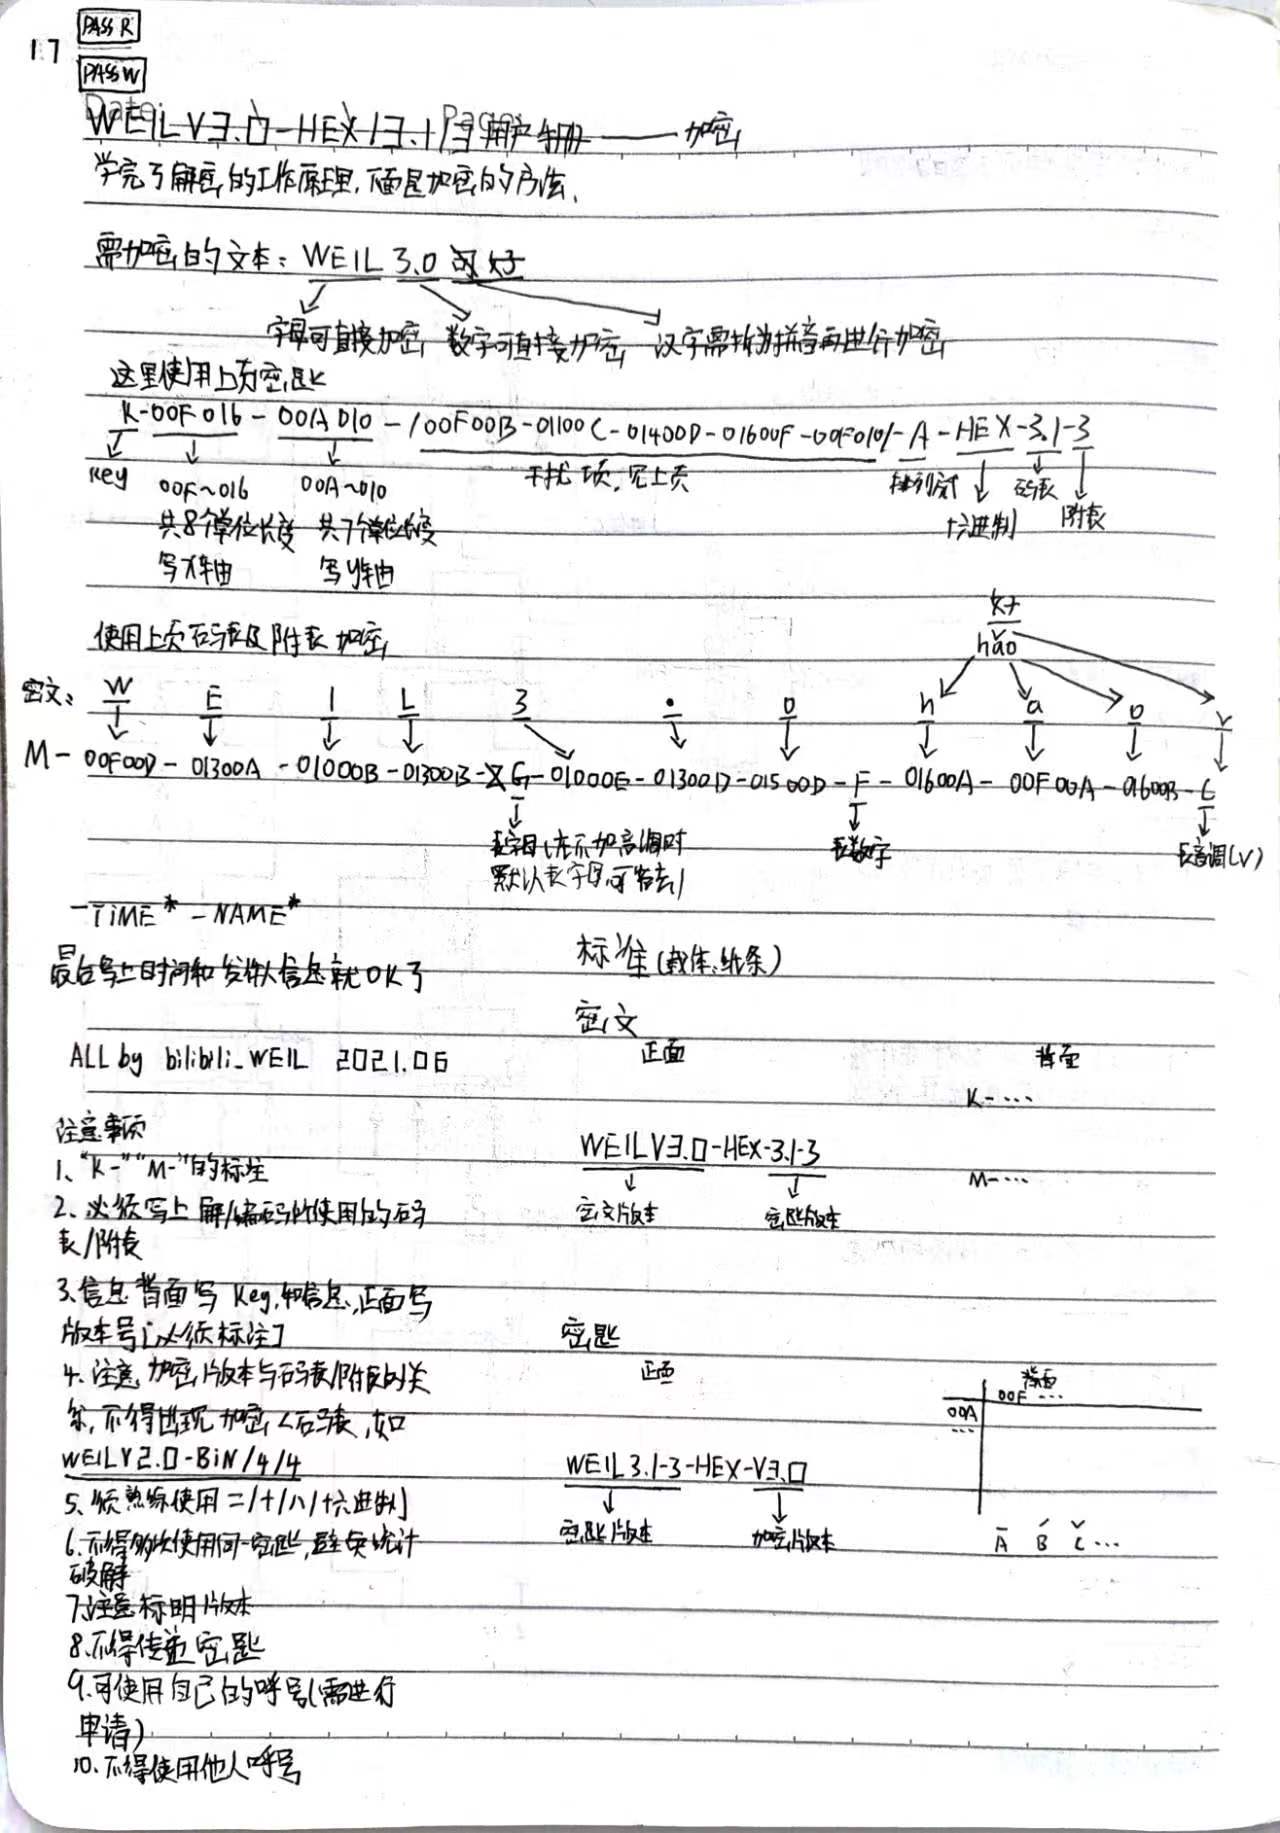 17
PASS R
PASS W
Date: Page:
WEILV3.0-HEX/3.1/3 用户手册——加密
学完了解密的工作原理,下面是加密的方法.
需加密的文本: WEIL 3.0 可好
字母可直接加密 数字可直接加密 汉字需拆为拼音再进行加密
这里使用上页密匙
K-00F016-00A010-/00F00B-01100C-01400D-01600F-00F010/-A-HEX-3.1-3
Key 00F~016 00A~010 干扰项,见上页 排列方式 十六进制 码表 附表
共8个单位长度 共7个单位长度
写X轴 写Y轴
使用上页码表及附表加密
好
hǎo
密文: W E I L 3 . 0 h a o ˇ
M-00F00D-01300A-01000B-01300B-G-01000E-01300D-01500D-F-01600A-00F00A-01600B-C
表字母(在不加音调时 默认表字母,可省去)
表数字
表音调(ˇ)
-TIME*-NAME*
最后写上时间和发件人信息就OK了
ALL by bilibili_WEIL 2021.06
标准(载体:纸条)
密文
正面 背面
K-···
WEILV3.0-HEX-3.1-3 M-···
密文版本 密匙版本
注意事项
1、"K-""M-"的标注
2、必须写上解/编码所使用的码
表/附表
3、信息背面写Key,和信息,正面写
版本号[必须标注]
4、注意加密版本与码表/附表的关
系,不得出现加密<码表,如
WEILV2.0-BIN/4/4
5、须熟练使用二/十/八/十六进制
6、不得多次使用同一密匙,避免统计
破解
7、注意标明版本
8、不得传递密匙
9、可使用自己的呼号(需进行
申请)
10、不得使用他人呼号
密匙
正面 背面
00F ···
00A
···
WEIL3.1-3-HEX-V3.0
密匙版本 加密版本
Ā B́ Č ···